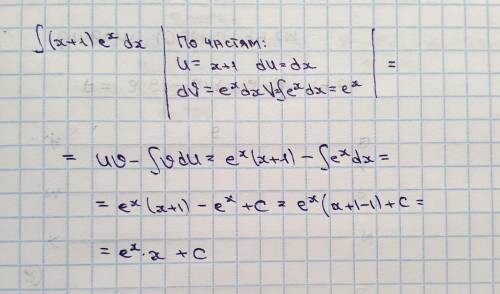 ∫(x+1)eˣdx | По частям: | =
u = x+1 du = dx
dϑ = eˣdx V=∫eˣdx = eˣ
= uϑ - ∫ϑdu = eˣ(x+1) - ∫eˣdx =
= eˣ(x+1) - eˣ + C = eˣ(x+1-1) + C =
= eˣ·x + C